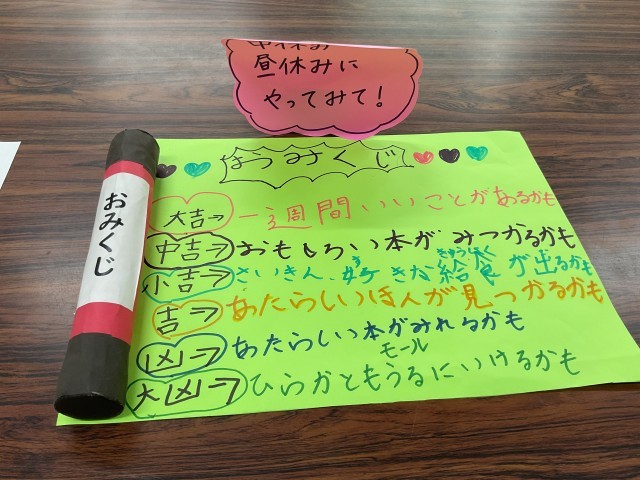 中休み
昼休みに
やってみて!
おみくじ
おみくじ
大吉→一週間いいことがあるかも
中吉→おもしろい本がみつかるかも
小吉→さいきん、好きな給食が出るかも
す きゅうしょく
吉→あたらしいほんが見つかるかも
凶→あたらしい本がみれるかも
モール
大凶→ひらかともうるにいけるかも